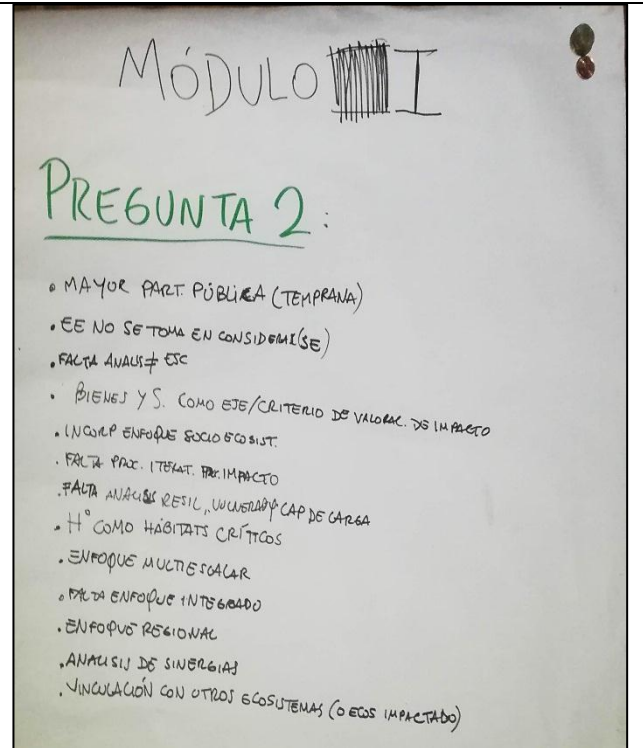 MÓDULO I
PREGUNTA 2:
• MAYOR PART. PÚBLICA (TEMPRANA)
• EE NO SE TOMA EN CONSIDERA(SE)
• FALTA ANALIS ≠ ESC
• BIENES Y S. COMO EJE/CRITERIO DE VALORAC. DE IMPACTO
• INCORP ENFOQUE SOCIO ECOSIST.
• FALTA ITERAT. IMPACTO
• FALTA ANALISIS RESIL., VULNERAB Y CAP DE CARGA
• H° COMO HÁBITATS CRÍTICOS
• ENFOQUE MULTIESCALAR
• FALTA ENFOQUE INTEGRADO
• ENFOQUE REGIONAL
• ANALISIS DE SINERGIAS
• VINCULACIÓN CON OTROS ECOSISTEMAS (O ECOS IMPACTADO)